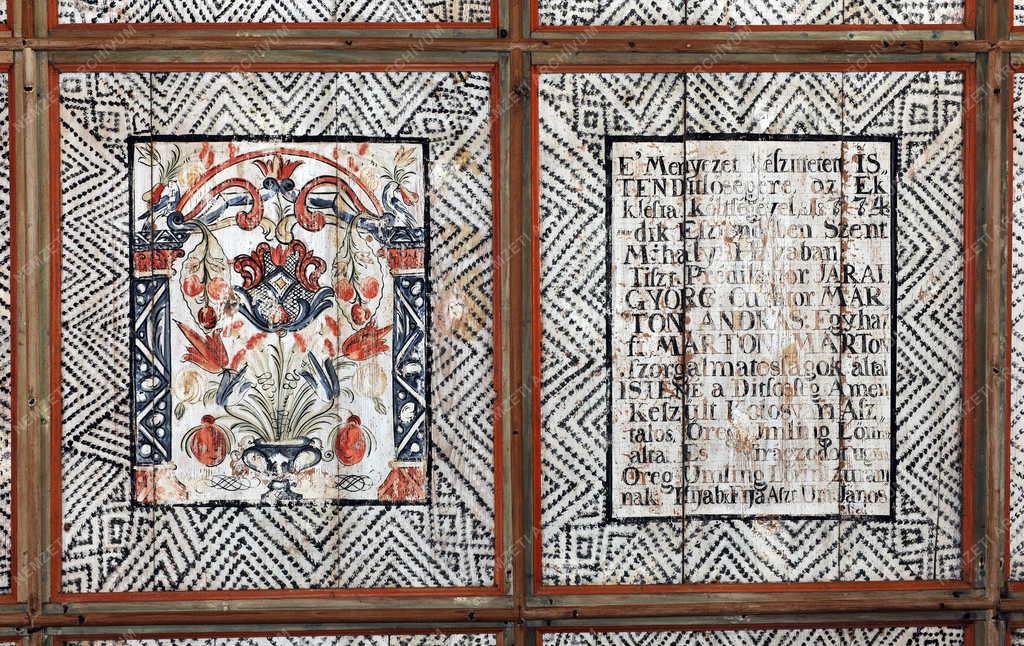 E' Menyezet Készíttetett IS,,
TEN Ditsőségére az Ek
klésia Költségével 1774
-dik Esztendőben Szent
Mihály Havában
Tiszt. Prédikátor JARAI
GYÖRG Curátor MAR
TON ANDRAS. Egyha
fi MARTON MARTON
szorgalmatosságok által
ISTENÉ a Ditsősség Amen
Készült Asz
talos, Öreg Umling Lőrin
által. És
Öreg Umling Lőrin
nak Fija Asz Um János
NEMZETI ARCHÍVUM